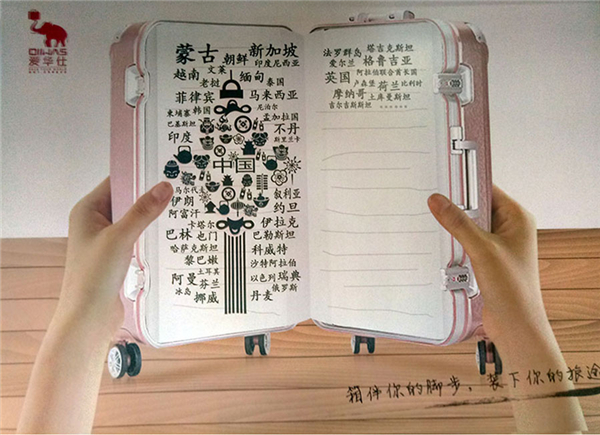 OIWAS
爱华仕
蒙古 朝鲜 新加坡
文莱 印度尼西亚
越南 老挝 缅甸
泰国
菲律宾 马来西亚
柬埔寨 韩国 尼泊尔
巴基斯坦 孟加拉国
印度 不丹
斯里兰卡
中国
马尔代夫 叙利亚
伊朗 约旦
阿富汗 伊拉克
卡塔尔
巴林 也门 巴勒斯坦
哈萨克斯坦 科威特
黎巴嫩 沙特阿拉伯
土耳其
阿曼 芬兰 以色列 瑞典
冰岛 挪威 俄罗斯
丹麦
法罗群岛 塔吉克斯坦
爱尔兰 格鲁吉亚
英国 阿拉伯联合酋长国
卢森堡 荷兰 比利时
摩纳哥 土库曼斯坦
吉尔吉斯斯坦
箱伴你的脚步，装下你的旅途